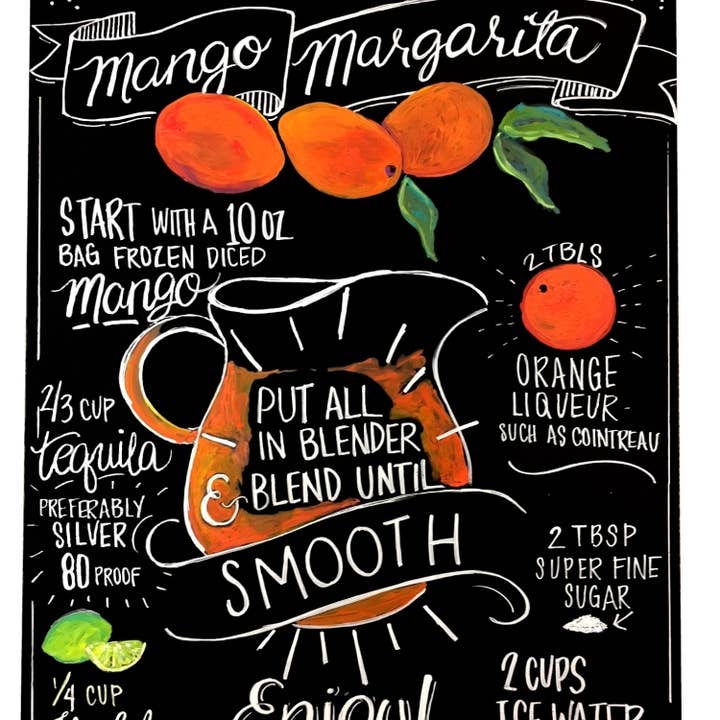 mango margarita
START WITH A 10 OZ
BAG FROZEN DICED
mango
2 TBLS
ORANGE
LIQUEUR -
SUCH AS COINTREAU
2/3 CUP
tequila
PREFERABLY
SILVER
80 PROOF
PUT ALL
IN BLENDER
& BLEND UNTIL
SMOOTH
2 TBSP
SUPER FINE
SUGAR
1/4 CUP
2 CUPS
ICE WATER
Enjoy!